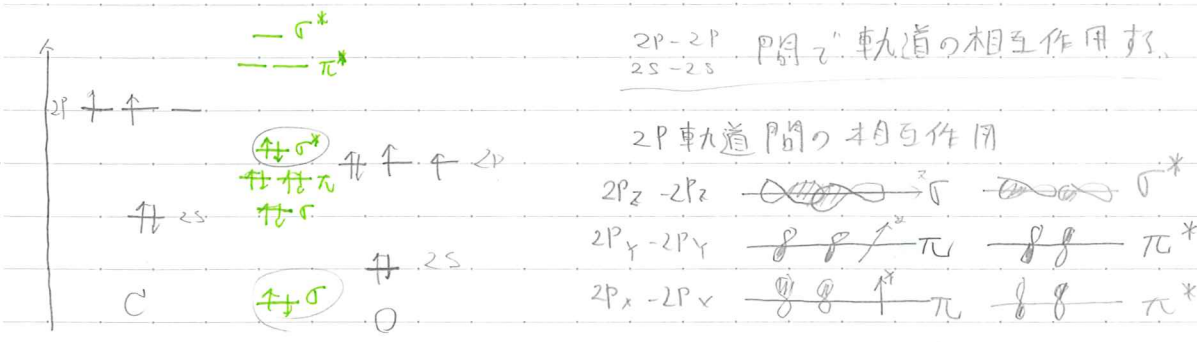 σ*
π*
2P
σ*
2P
π
2S
σ
2S
σ
C
O
2P-2P
2S-2S
間で軌道の相互作用する。
2P軌道間の相互作用
2Pz-2Pz z σ σ*
2PY-2PY π π*
2Px-2Px π π*